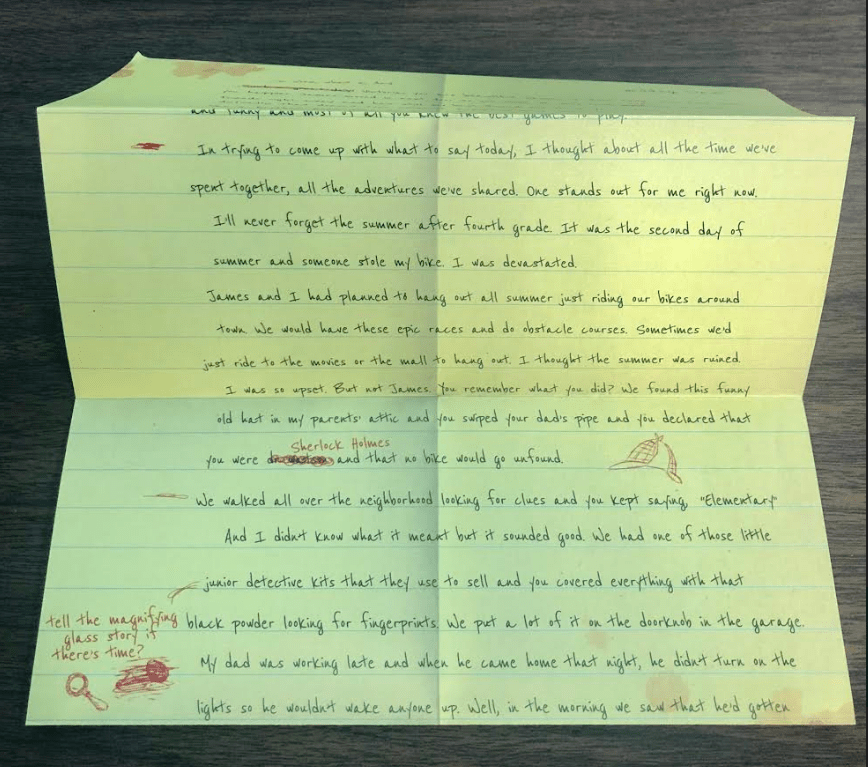 and funny and most of all you knew the best games to play.
In trying to come up with what to say today, I thought about all the time we've
spent together, all the adventures we've shared. One stands out for me right now.
I'll never forget the summer after fourth grade. It was the second day of
summer and someone stole my bike. I was devastated.
James and I had planned to hang out all summer just riding our bikes around
town. We would have these epic races and do obstacle courses. Sometimes we'd
just ride to the movies or the mall to hang out. I thought the summer was ruined.
I was so upset. But not James. You remember what you did? We found this funny
old hat in my parents' attic and you swiped your dad's pipe and you declared that
Sherlock Holmes
you were and that no bike would go unfound.
We walked all over the neighborhood looking for clues and you kept saying, "Elementary"
And I didn't know what it meant but it sounded good. We had one of those little
junior detective kits that they use to sell and you covered everything with that
black powder looking for fingerprints. We put a lot of it on the doorknob in the garage.
tell the magnifying
glass story if
there's time?
My dad was working late and when he came home that night, he didn't turn on the
lights so he wouldn't wake anyone up. Well, in the morning we saw that he'd gotten